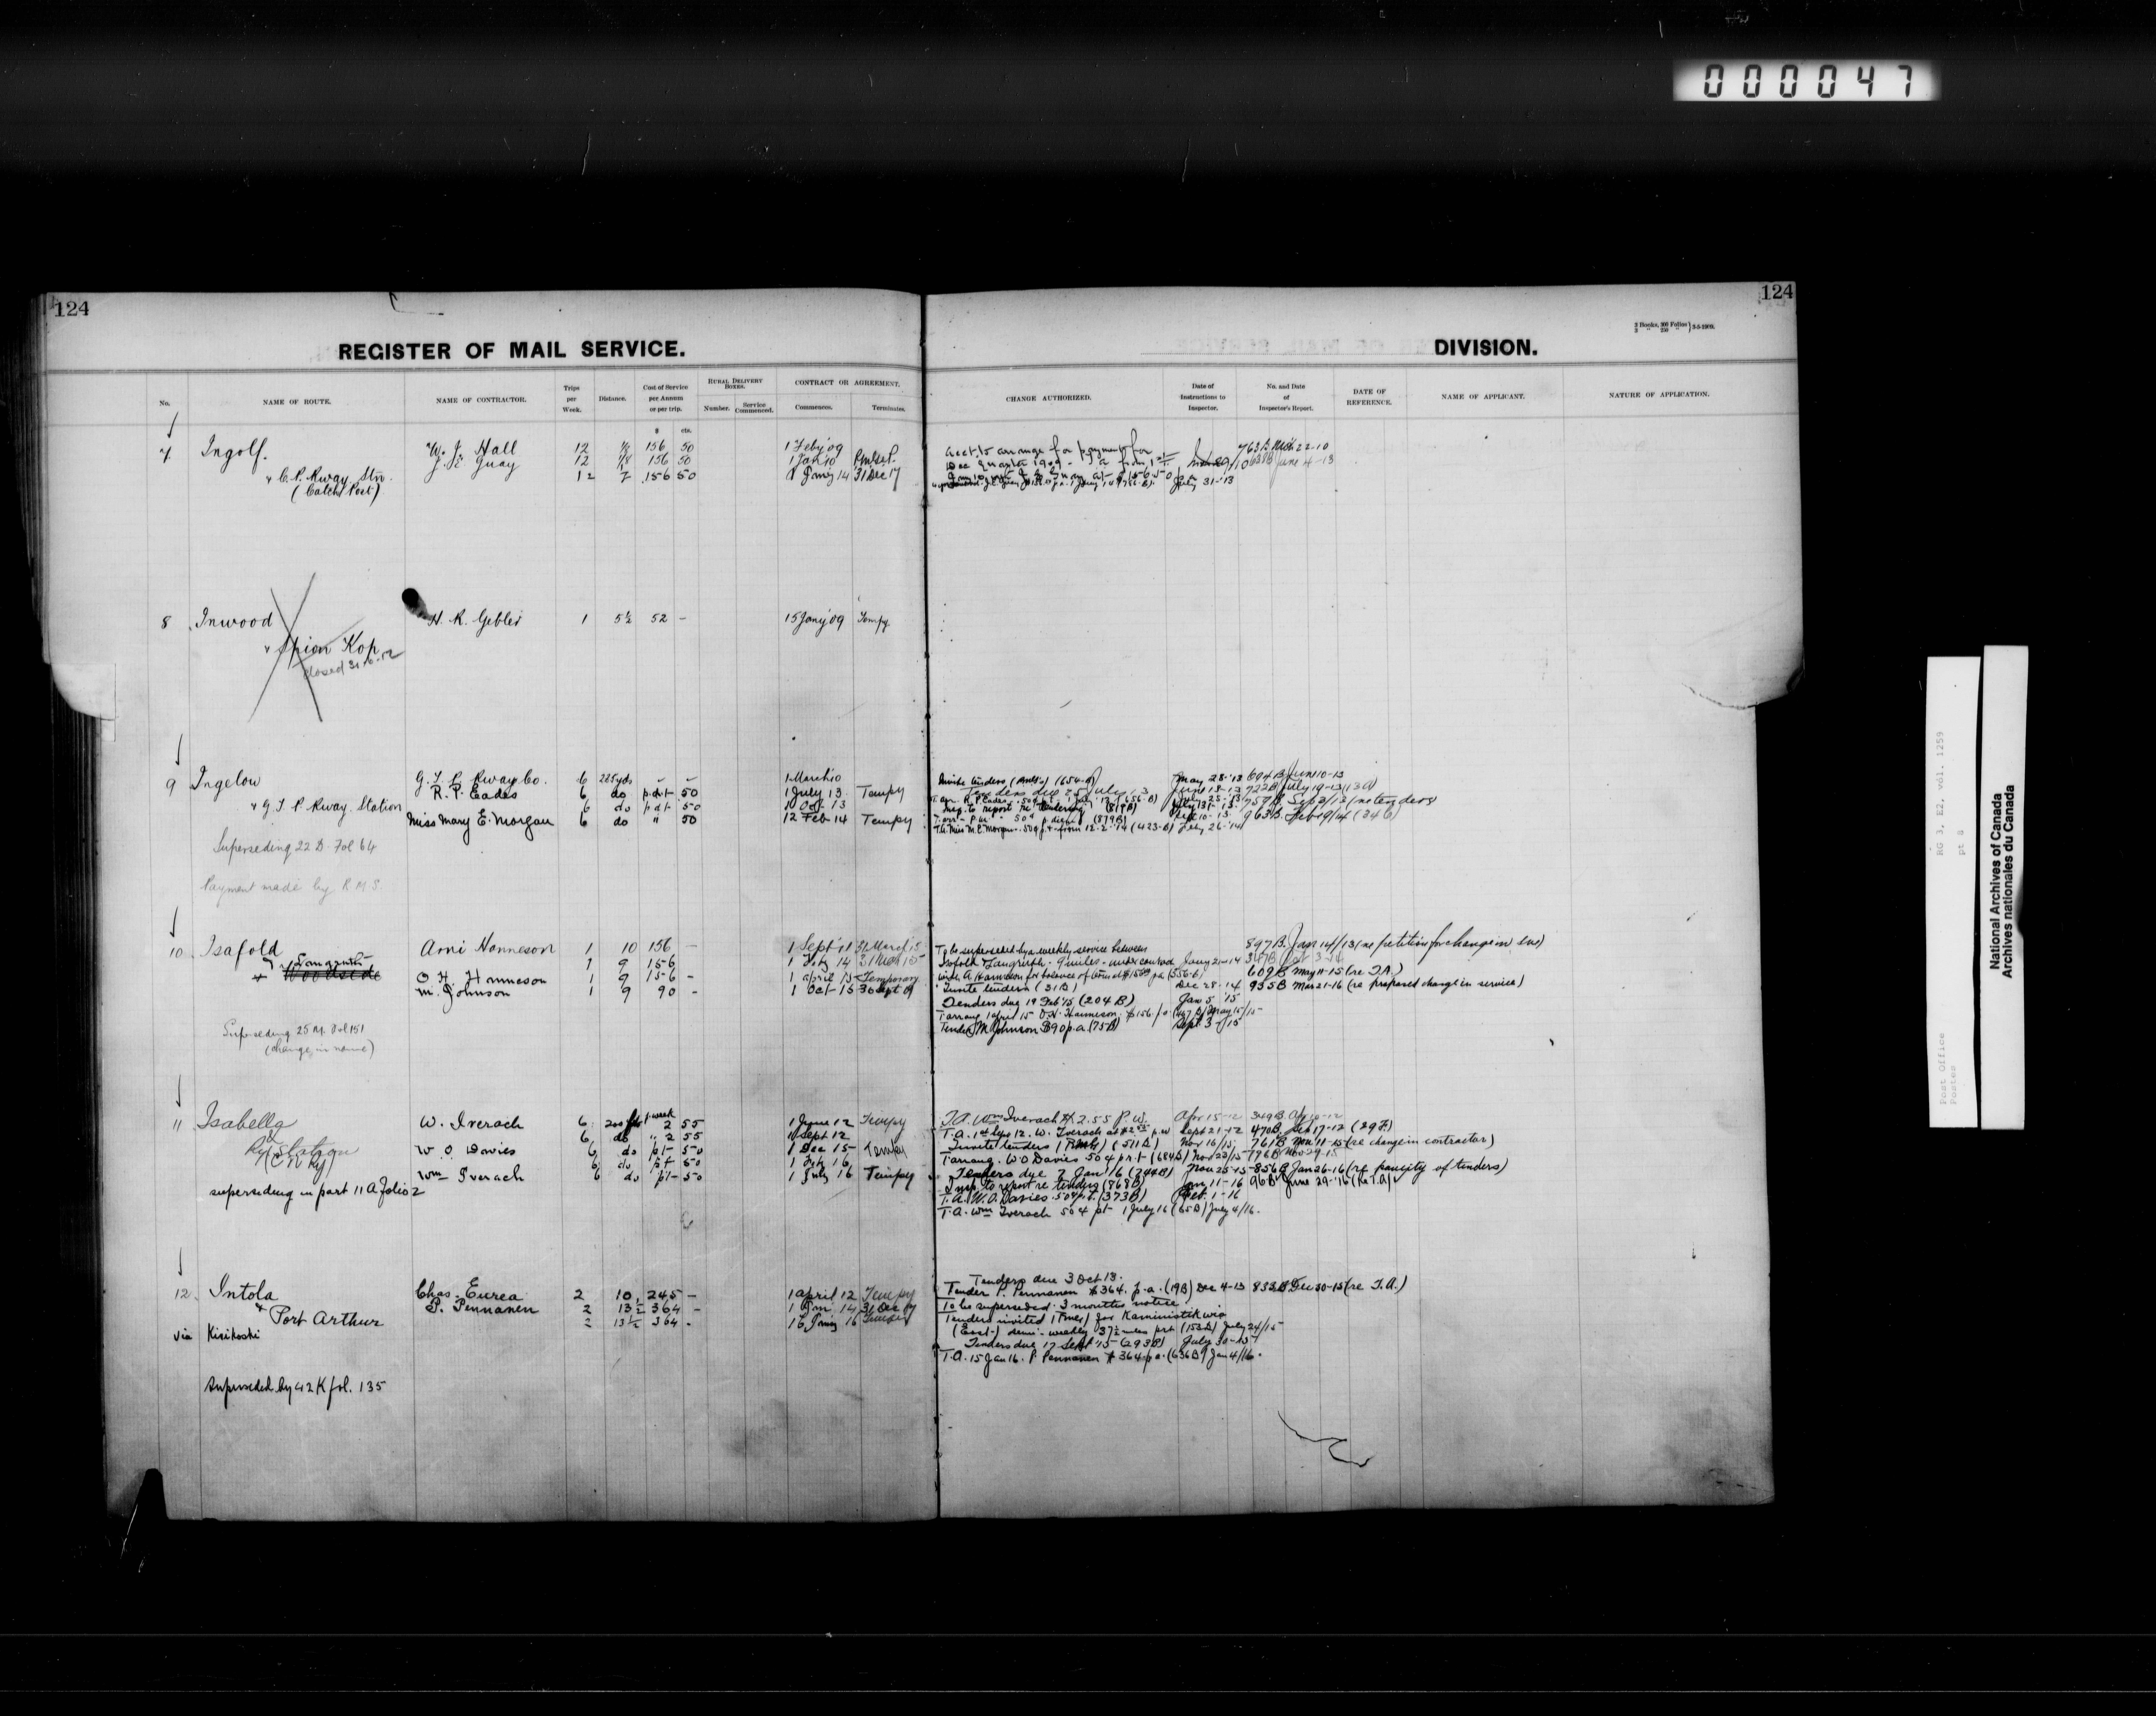 000047
124
124
2 Books, 300 Folios
2 " 250 " } 3-5-1909.
REGISTER OF MAIL SERVICE.
DIVISION.
No.
NAME OF ROUTE.
NAME OF CONTRACTOR.
Trips per Week.
Distance.
Cost of Service per Annum or per trip.
RURAL DELIVERY BOXES.
Number.
Service Commenced.
CONTRACT OR AGREEMENT.
Commences.
Terminates.
CHANGE AUTHORIZED.
Date of Instructions to Inspector.
No. and Date of Inspector's Report.
DATE OF REFERENCE.
NAME OF APPLICANT.
NATURE OF APPLICATION.
$ cts.
7 Ingolf W. J. Hall 12 156 50 1 Feby '09
J. E. Guay 12 156 50 1 Jan 10
& C. P. Rway Stn. 12 156 50 1 Jany 14 31 Dec 17
(Catch Post)
Acct. to arrange for payment for 763 B 22-10
Dec Quarter 1909 638 B June 4-13
July 31-13
8 Inwood H. R. Gebler 1 5½ 52 - 15 Jany '09 Tempy
& Spion Kop
closed
9 Ingelow G. T. P. Rway Co. 6 225 yds 1 March 10
R. P. Eades 6 do p.d.t. 50 1 July 13 Tempy
& G T P Rway Station 6 do p.d.t. 50 1 Oct. 13
Miss Mary E. Morgan 6 do " 50 12 Feb 14 Tempy
Superseding 22 D. Fol 64
Payment made by R. M. S.
Invite tenders May 28-'13 694 B June 10-13
Tenders due 25 July 13 722 B July 19-13
757 B Sep 2/13 (no tenders)
Insp. to report re tendering (819B)
963 B. Feb 19/14 (346)
T.A. Miss M. E. Morgan. 50¢ p.t. from 12-2-'14 (423-B) Feby 26-'14
10 Isafold Arni Hanneson 1 10 156 - 1 Sept '11 31 March 15
& Langruth 1 9 156 1 Feby 14 31 Mch 15
Woodside O H. Hanneson 1 9 156 - 1 April 15 Temporary
M. Johnson 1 9 90 - 1 Oct-15 30 Sept 19
Superseding 25 M. Fol 151
(change in name)
To be superseded by a weekly service between 897 B. Jan 14/13 (re petition for change in svc)
Isafold & Langruth - 9 miles - under contract Jany 21-14
with A. Hanneson for balance of term at $156 p.a. (556-B) 609 B May 11-15 (re T.A.)
Invite tenders (31 B) Dec 28-14 935 B Mar 21-16 (re proposed change in service)
Tenders due 19 Feb '15 (204 B) Jan 5 '15
T arrang 1 April 15 O.H. Hanneson. $156. p.a. May 15/15
Tender M. Johnson $90 p.a. (75 B) Sept. 3-/15
11 Isabella W. Iverach 6 200 p week 2 55 1 June 12 Tempy
& 6 do " 2 55 1 Sept 12
Ry Station W O Davies 6 do pt- 50 1 Dec 15- Tempy
(C N Ry) 6 do pt- 50 1 Feby 16
Wm Iverach 6 do pt- 50 1 July 16 Tempy
superseding in part 11 A folio 2
T.A. Wm Iverach @ $2.55 P.W. Apr 15-12 349 B Apr 10-12
T.A. 1st Sept 12. W. Iverach at $2.55 p.w Sept 21-12 470 B. Sep 17-12 (29 F.)
Invite tenders (511 B) Nov 16/15 761 B Nov 11-15 (re change in contractor)
T arrang. W O Davies 50¢ p r t (684 B) Nov 23/15 796 B Nov 29-15
Tenders due 7 Jan 16 (744 B) Nov 25-15 856 B Jan 26-16 (re paucity of tenders)
Insp. to report re tendering (868 B) Jan 11-16 96 B June 29-'16 (Re T.A)
T. A. W. O. Davies 50¢ p.t. (373 B) Feb. 1-16
T. A. Wm Iverach 50¢ pt- 1 July 16 (65 B) July 4/16.
12 Intola Chas. Eurea 2 10 245 - 1 April 12 Tempy
& P. Pennanen 2 13½ 364 - 1 Jan. 14 31 Dec 17
Port Arthur 2 13½ 364 - 16 Jany 16 Tempy
via Kivikoski
Superseded by 42 K fol. 135
Tenders due 3 Oct 13.
Tender P. Pennanen $364. p.a. (19 B) Dec 4-13 833 B Dec 30-15 (re T.A.)
To be superseded. 3 months notice
Tenders invited for Kaministikwia
(East-) demi-weekly 37½ miles prt (153 B) July 24/15
Tenders due 17 Sept '15 (293 B) July 30-15
T.A. 15 Jan 16. P. Pennanen $364 p a. (636 B) Jan 4/16.
RG 3, E2, vol. 1259
pt 8
Post Office
Postes
National Archives of Canada
Archives nationales du Canada